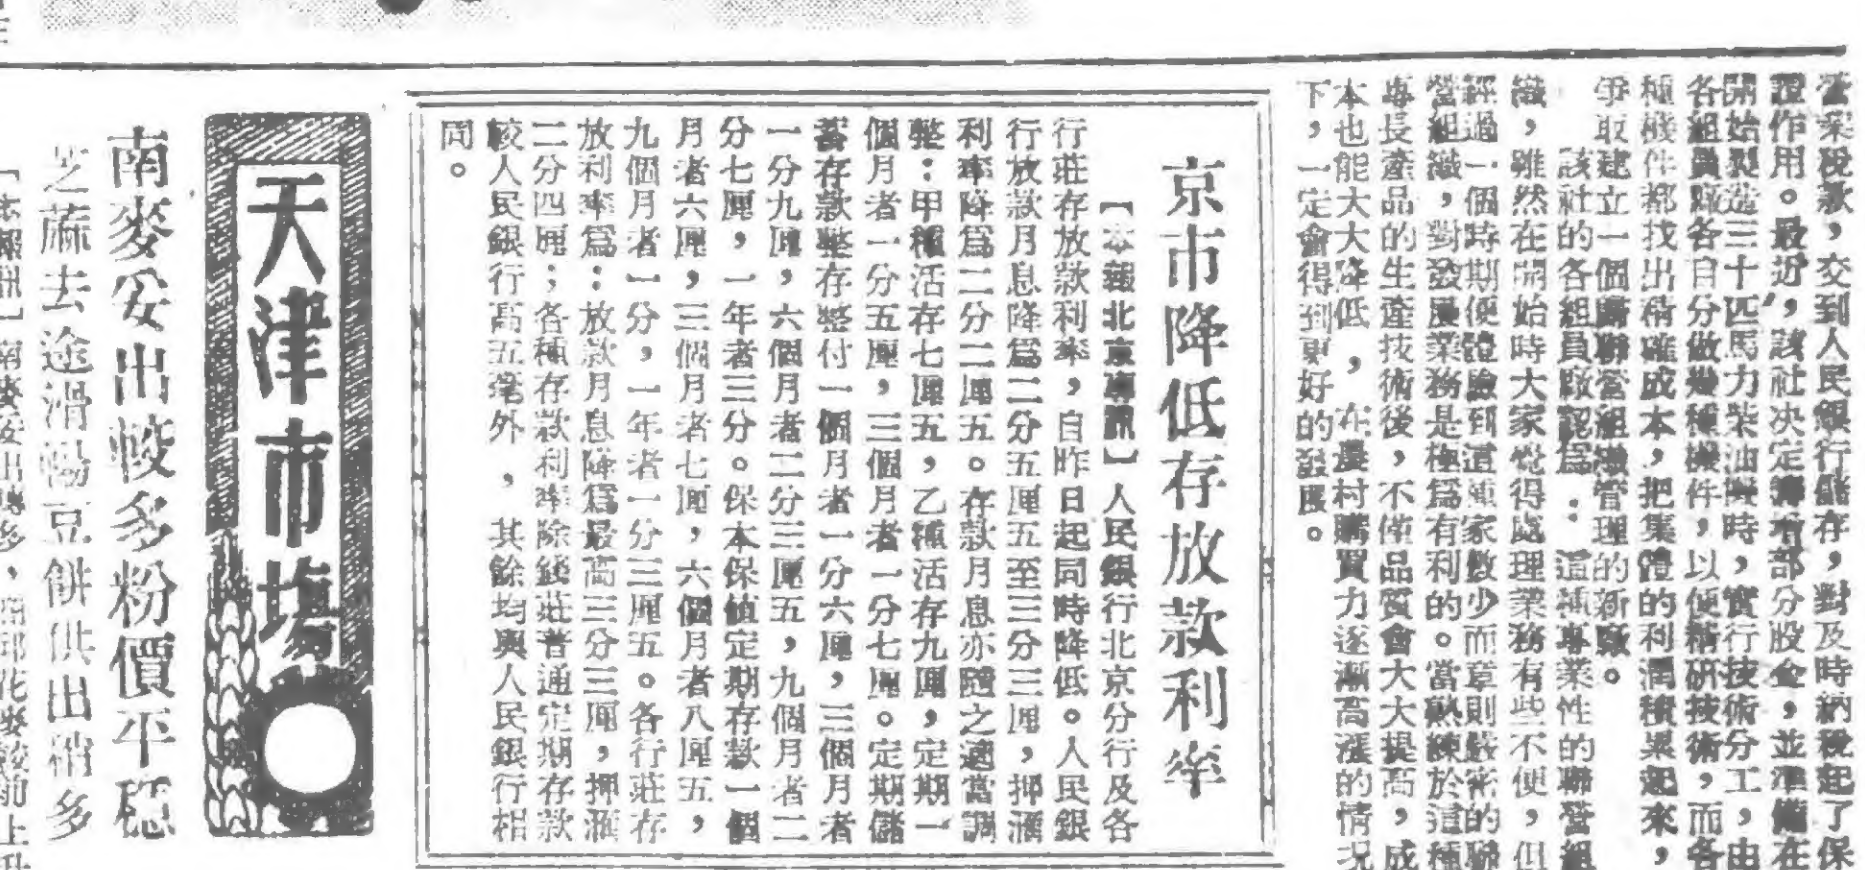 營業稅款,交到人民銀行儲存,對及時納稅起了保
證作用。最近,該社决定籌增部分股金,並準備在
開始製造三十匹馬力柴油機時,實行技術分工,由
各組員廠各自分做幾種機件,以便精研技術,而各
種機件都找出精確成本,把集體的利潤積累起來,
爭取建立一個聯營組織管理的新廠。
該社的各組員廠認爲:這種專業性的聯營組
織,雖然在開始時大家覺得處理業務有些不便,但
經過一個時期便體驗到這種家數少而章則嚴密的聯
營組織,對發展業務是極爲有利的。當熟練於這種
專長產品的生產技術後,不僅品質會大大提高,成
本也能大大降低,在農村購買力逐漸高漲的情况
下,一定會得到更好的發展。
京市降低存放款利率
【本報北京專訊】人民銀行北京分行及各
行莊存放款利率,自昨日起同時降低。人民銀
行放款月息降爲二分五厘五至三分三厘,押滙
利率降爲二分二厘五。存款月息亦隨之適當調
整:甲種活存七厘五,乙種活存九厘,定期一
個月者一分五厘,三個月者一分七厘。定期儲
蓄存款整存整付一個月者一分六厘,三個月者
一分九厘,六個月者二分三厘五,九個月者二
分七厘,一年者三分。保本保值定期存款一個
月者六厘,三個月者七厘,六個月者八厘五,
九個月者一分,一年者一分三厘五。各行莊存
放利率爲:放款月息降爲最高三分三厘,押滙
二分四厘;各種存款利率除錢莊普通定期存款
較人民銀行高五毫外,其餘均與人民銀行相
同。
天津市場
南麥妥出較多粉價平穩
芝蔴去途滑暢豆餅供出稍多
【本報訊】南麥妥出轉多,